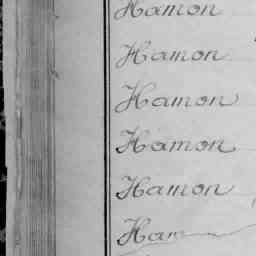 Hamon
Hamon
Hamon
Hamon
Hamon
Ham